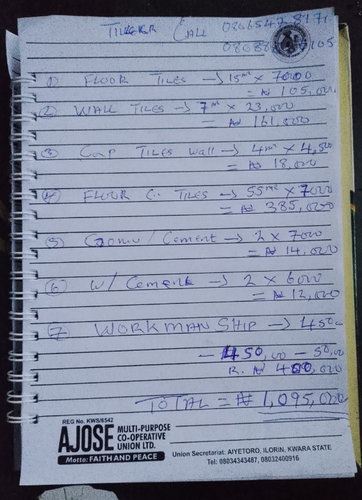 TILLER CALL
① FLOOR TILES → 15m² × 7000
= ₦ 105,000
② WALL TILES → 7m × 23,000
= ₦ 161,000
③ Gap TILES Wall → 4m² × 4,500
= ₦ 18,000
④ FLOOR TILES → 55m² × 7000
= ₦ 385,000
⑤ Cement → 2 × 7000
= ₦ 14,000
⑥ W/ Cement → 2 × 6000
= ₦ 12,000
7 WORKMAN SHIP → 450
— 450,00 — 50,00
R. ₦ 400,000
TOTAL = ₦ 1,095,000
REG No. KWS/6542
AJOSE MULTI-PURPOSE
CO-OPERATIVE
UNION LTD.
Motto: FAITH AND PEACE
Union Secretariat: AIYETORO, ILORIN, KWARA STATE
Tel: 08034343487, 08032400916